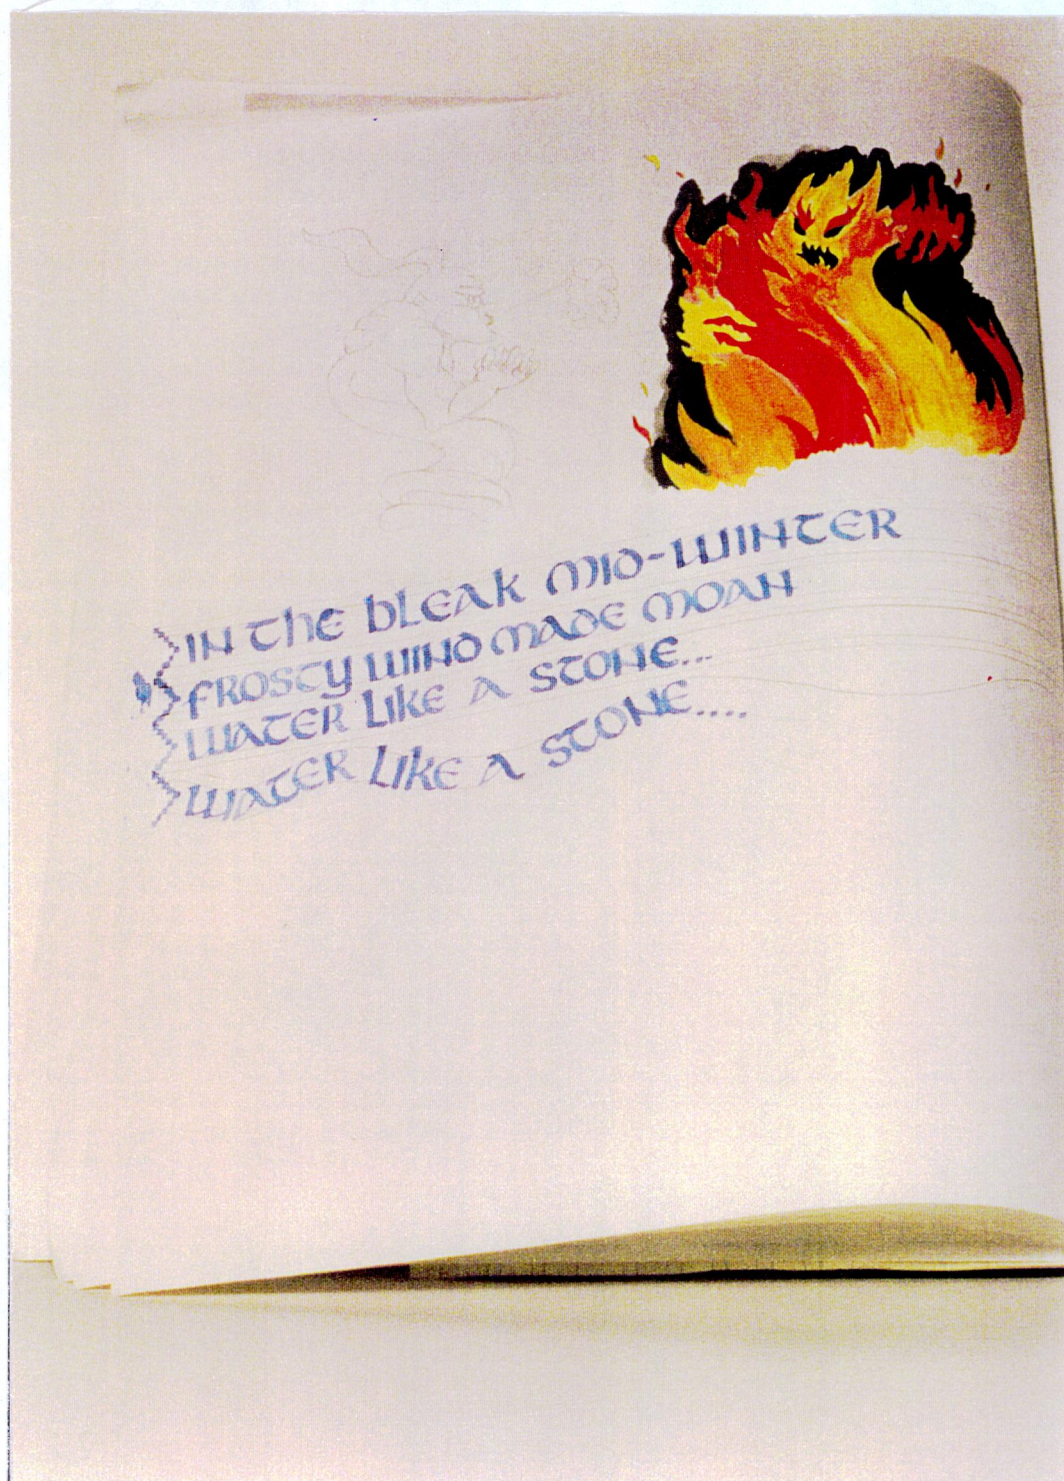 IN THE BLEAK MID-WINTER
FROSTY WIND MADE MOAN
WATER LIKE A STONE...
WATER LIKE A STONE....